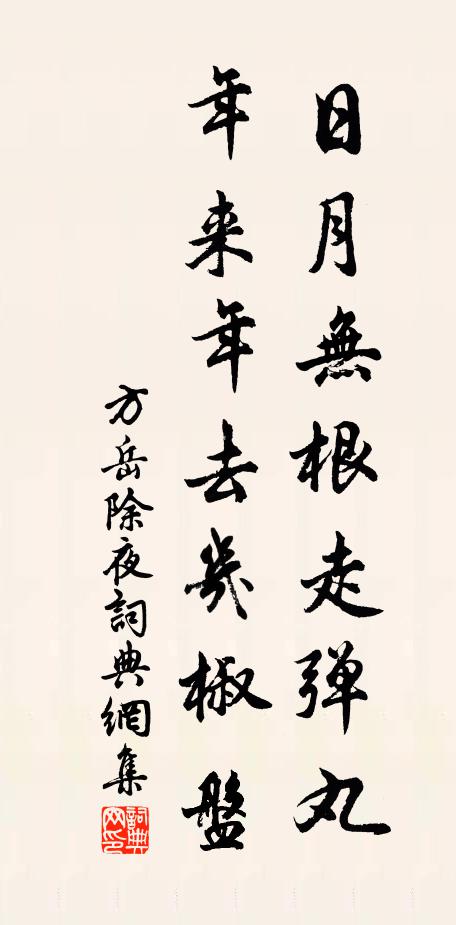 日月無根走弹丸
年来年去幾椒盤
方岳除夜詞典網集
詞典网印